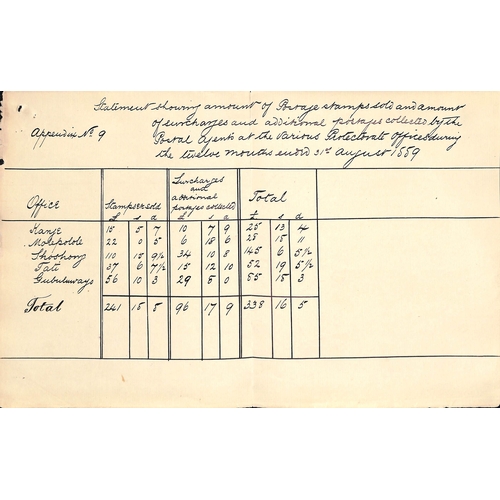 Statement showing amount of Postage stamps sold and amount
of surcharges and additional postages collected by the
Appendix No 9
Postal Agents at the various Protectorate Offices during
the twelve months ended 31st August 1889
Office Stamps sold Surcharges and additional postages collected Total
£ s d £ s d £ s d
Kanye 15 5 7 10 7 9 25 13 4
Molepolole 22 0 5 6 18 6 28 18 11
Shoshong 110 15 9½ 34 10 8 145 6 5½
Tati 37 6 7½ 15 12 10 52 19 5½
Gubuluwayo 56 10 3 29 8 0 85 18 3
Total 241 18 8 96 17 9 338 16 5